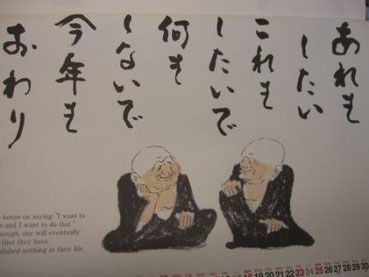 あれも
したい
これも
したいで
何も
しないで
今年も
おわり
keeps on saying, "I want to
and I want to do that"
one will eventually
that they have
nothing in their life.
18 19 20 21 22 23 24 25 26 27 28 29 30